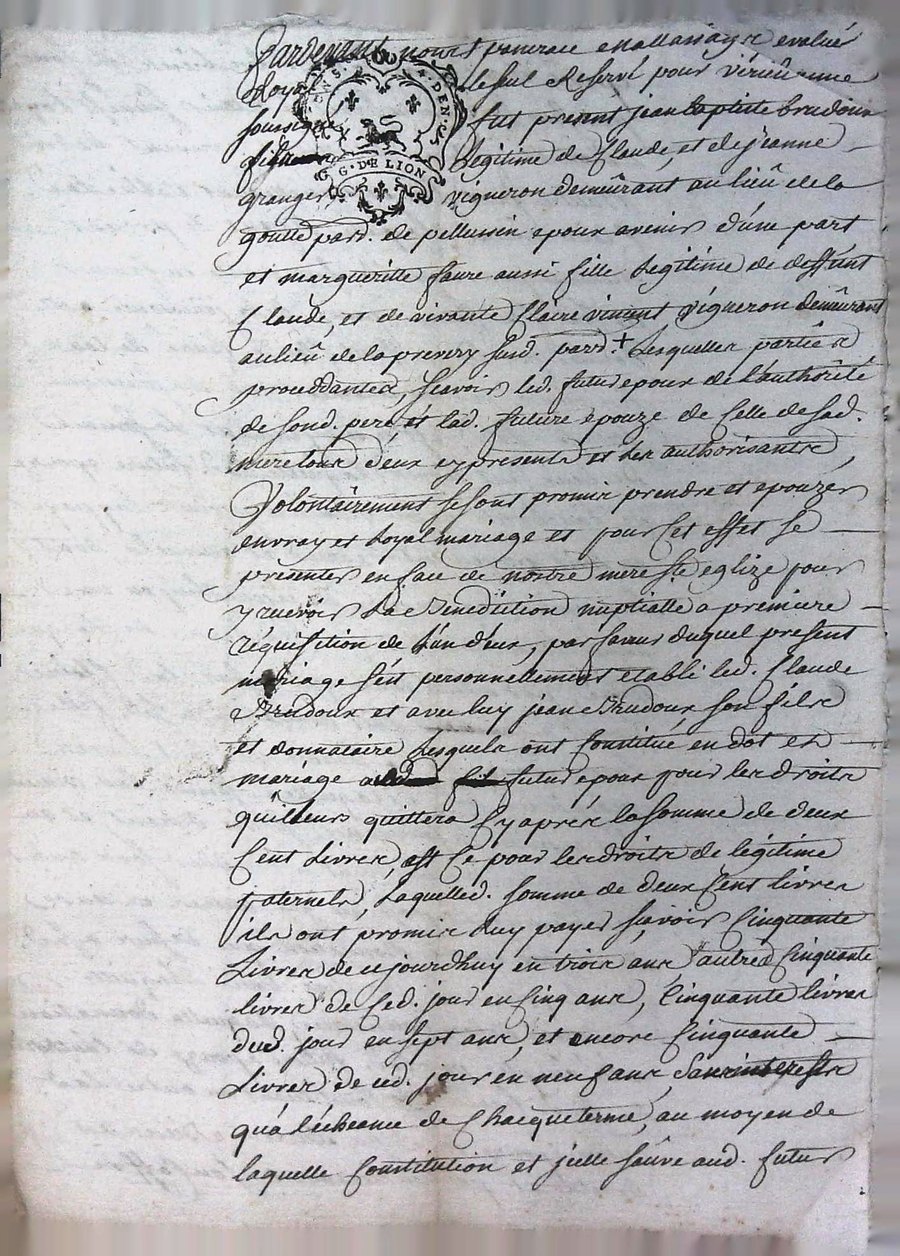 Pardevant nous pancrace enallassagzr evalué
Royal le sul Reservé pour vérieu ame
soussigné fut present jean baptiste brudoux
fils legitime de Claude, et de jeanne
granger vigneron demeûrant au lieû de la
goutte parr. de pellussin epoux avenir d'une part
et margueritte faure aussi fille legitime de deffunt
Claude, et de vivante Claire vinent vigneron demeûrant
au lieû de la prevery susd. parr. + Lesquelles partiës
proceddantes, scavoir led. futur epoux de l'authôrité
de sond. pere, et lad. future épouze de Celle de sad.
mere tous deux cy presents et les authorisants,
Volontairement se sont promis prendre et epouzer
en vray et Loyal mariage et pour Cet effet se
présenter en face de nostre mere ste eglize pour
y recevoir La Benediction nuptialle a premiere
réquisition de L'un d'eux, par faveur duquel present
mariage s'est personnellement etabli led. Claude
Brudoux et avec luy jean Brudoux son fils
et donnataire Lesquels ont Constitué en dot et
mariage aud. futur epoux pour les droits
qu'il leurs quittera Cy après la somme de deux
Cent Livres, est Ce pour les droits de légitime
paternels, Laquelled. somme de deux Cent livres
ils ont promis Luy payer scavoir Cinquante
Livres de ce jourdhuy en trois ans autres Cinquante
livres de Ced. jour en Cinq ans, Cinquante livres
dud. jour en sept ans, et encore Cinquante
Livres de ced. jour en neuf ans, sans interests
qu'à l'écheance de Chacque terme, au moyen de
laquelle Constitution et jcelle saûve aud. futur
G. DE LION